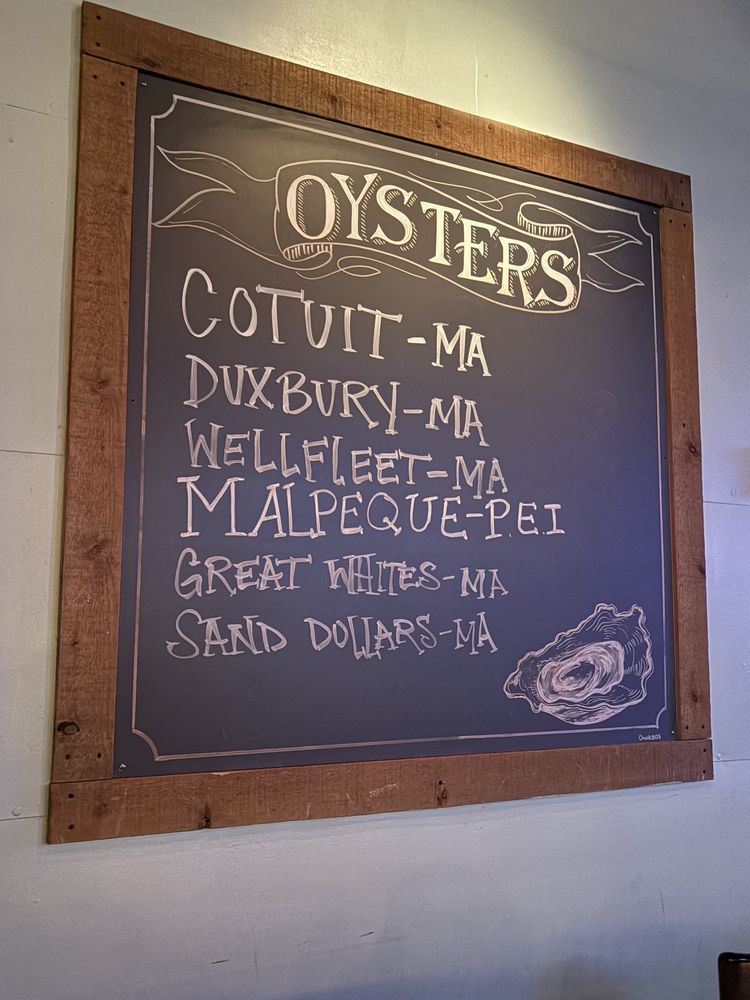 OYSTERS
COTUIT-MA
DUXBURY-MA
WELLFLEET-MA
MALPEQUE-P.E.I
GREAT WHITES-MA
SAND DOLLARS-MA